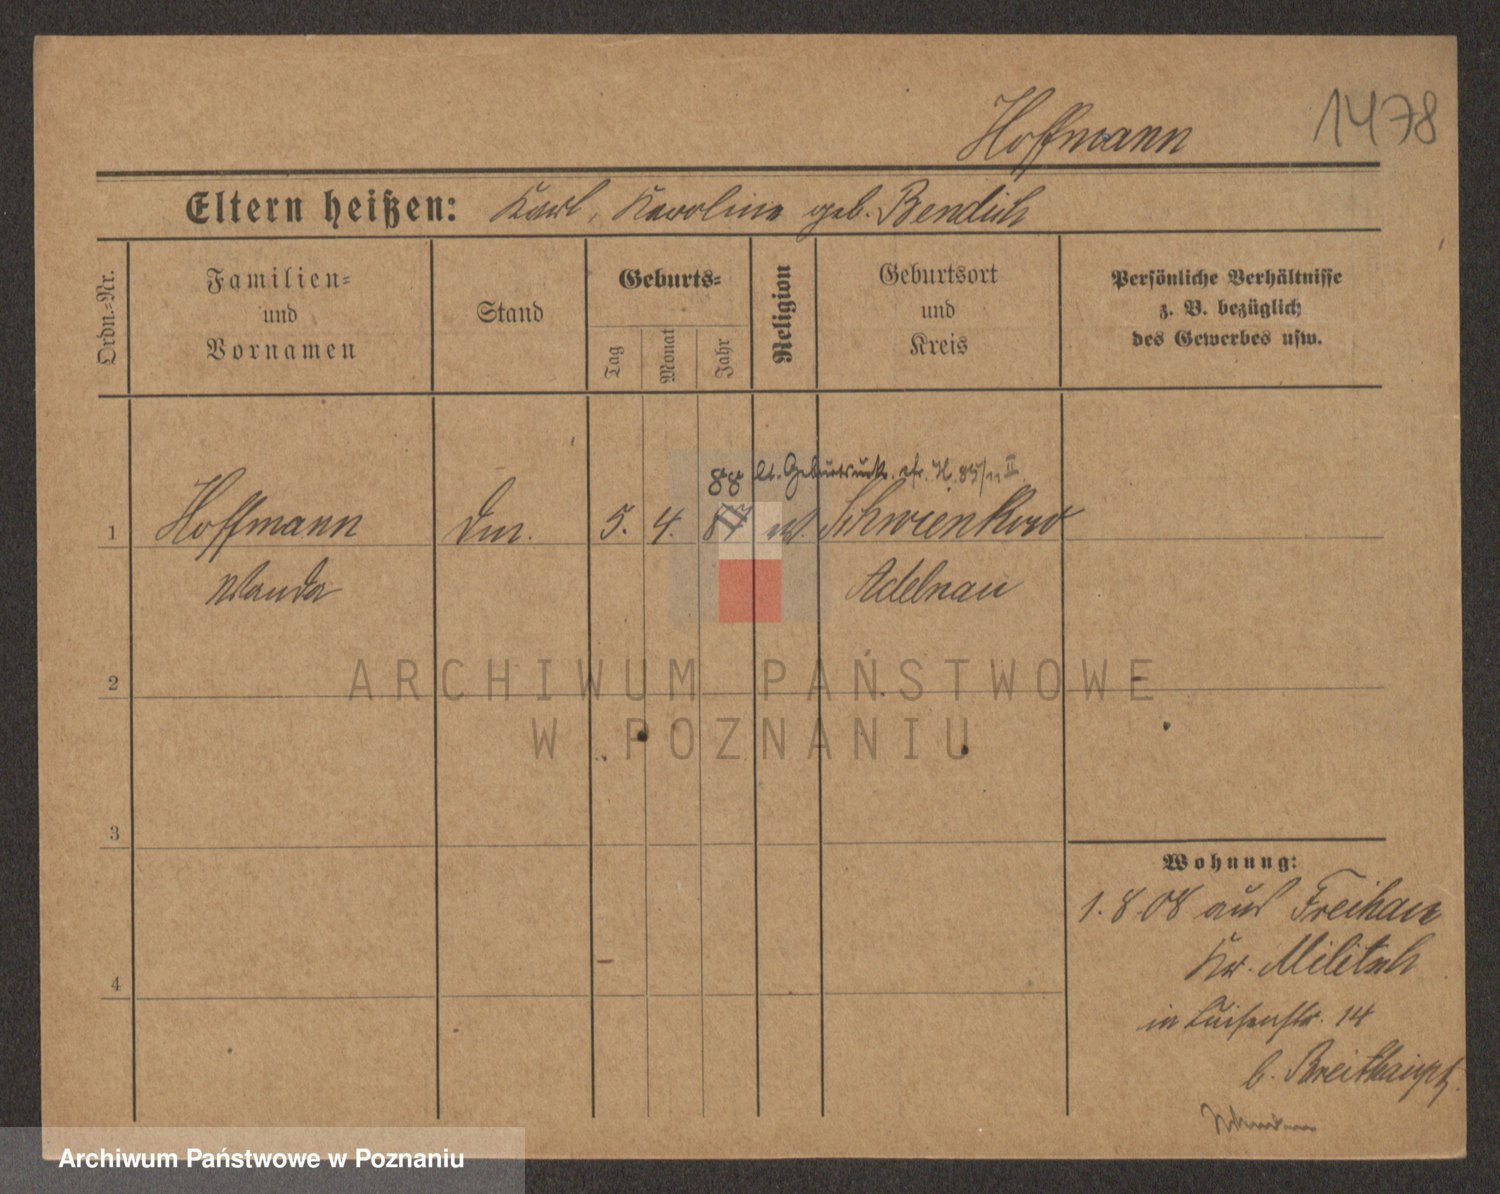 1478
Hoffmann
Eltern heißen: Karl, Karoline geb. Bendich
Ordn.-Nr.
Familien-
und
Vornamen
Stand
Geburts-
Tag
Monat
Jahr
Religion
Geburtsort
und
Kreis
Persönliche Verhältnisse
z. B. bezüglich
des Gewerbes usw.
88 lt. Geburtsurk. cfr. H. 85/11 II
1 Hoffmann 5. 4. 87 ev. Schwienkow
Wanda Adelnau
ARCHIWUM PAŃSTWOWE
W POZNANIU
2
3
4
Wohnung:
1.8.08 aus Freihan
Kr. Militsch
in Luisenstr. 14
b. Breithaupt
Archiwum Państwowe w Poznaniu